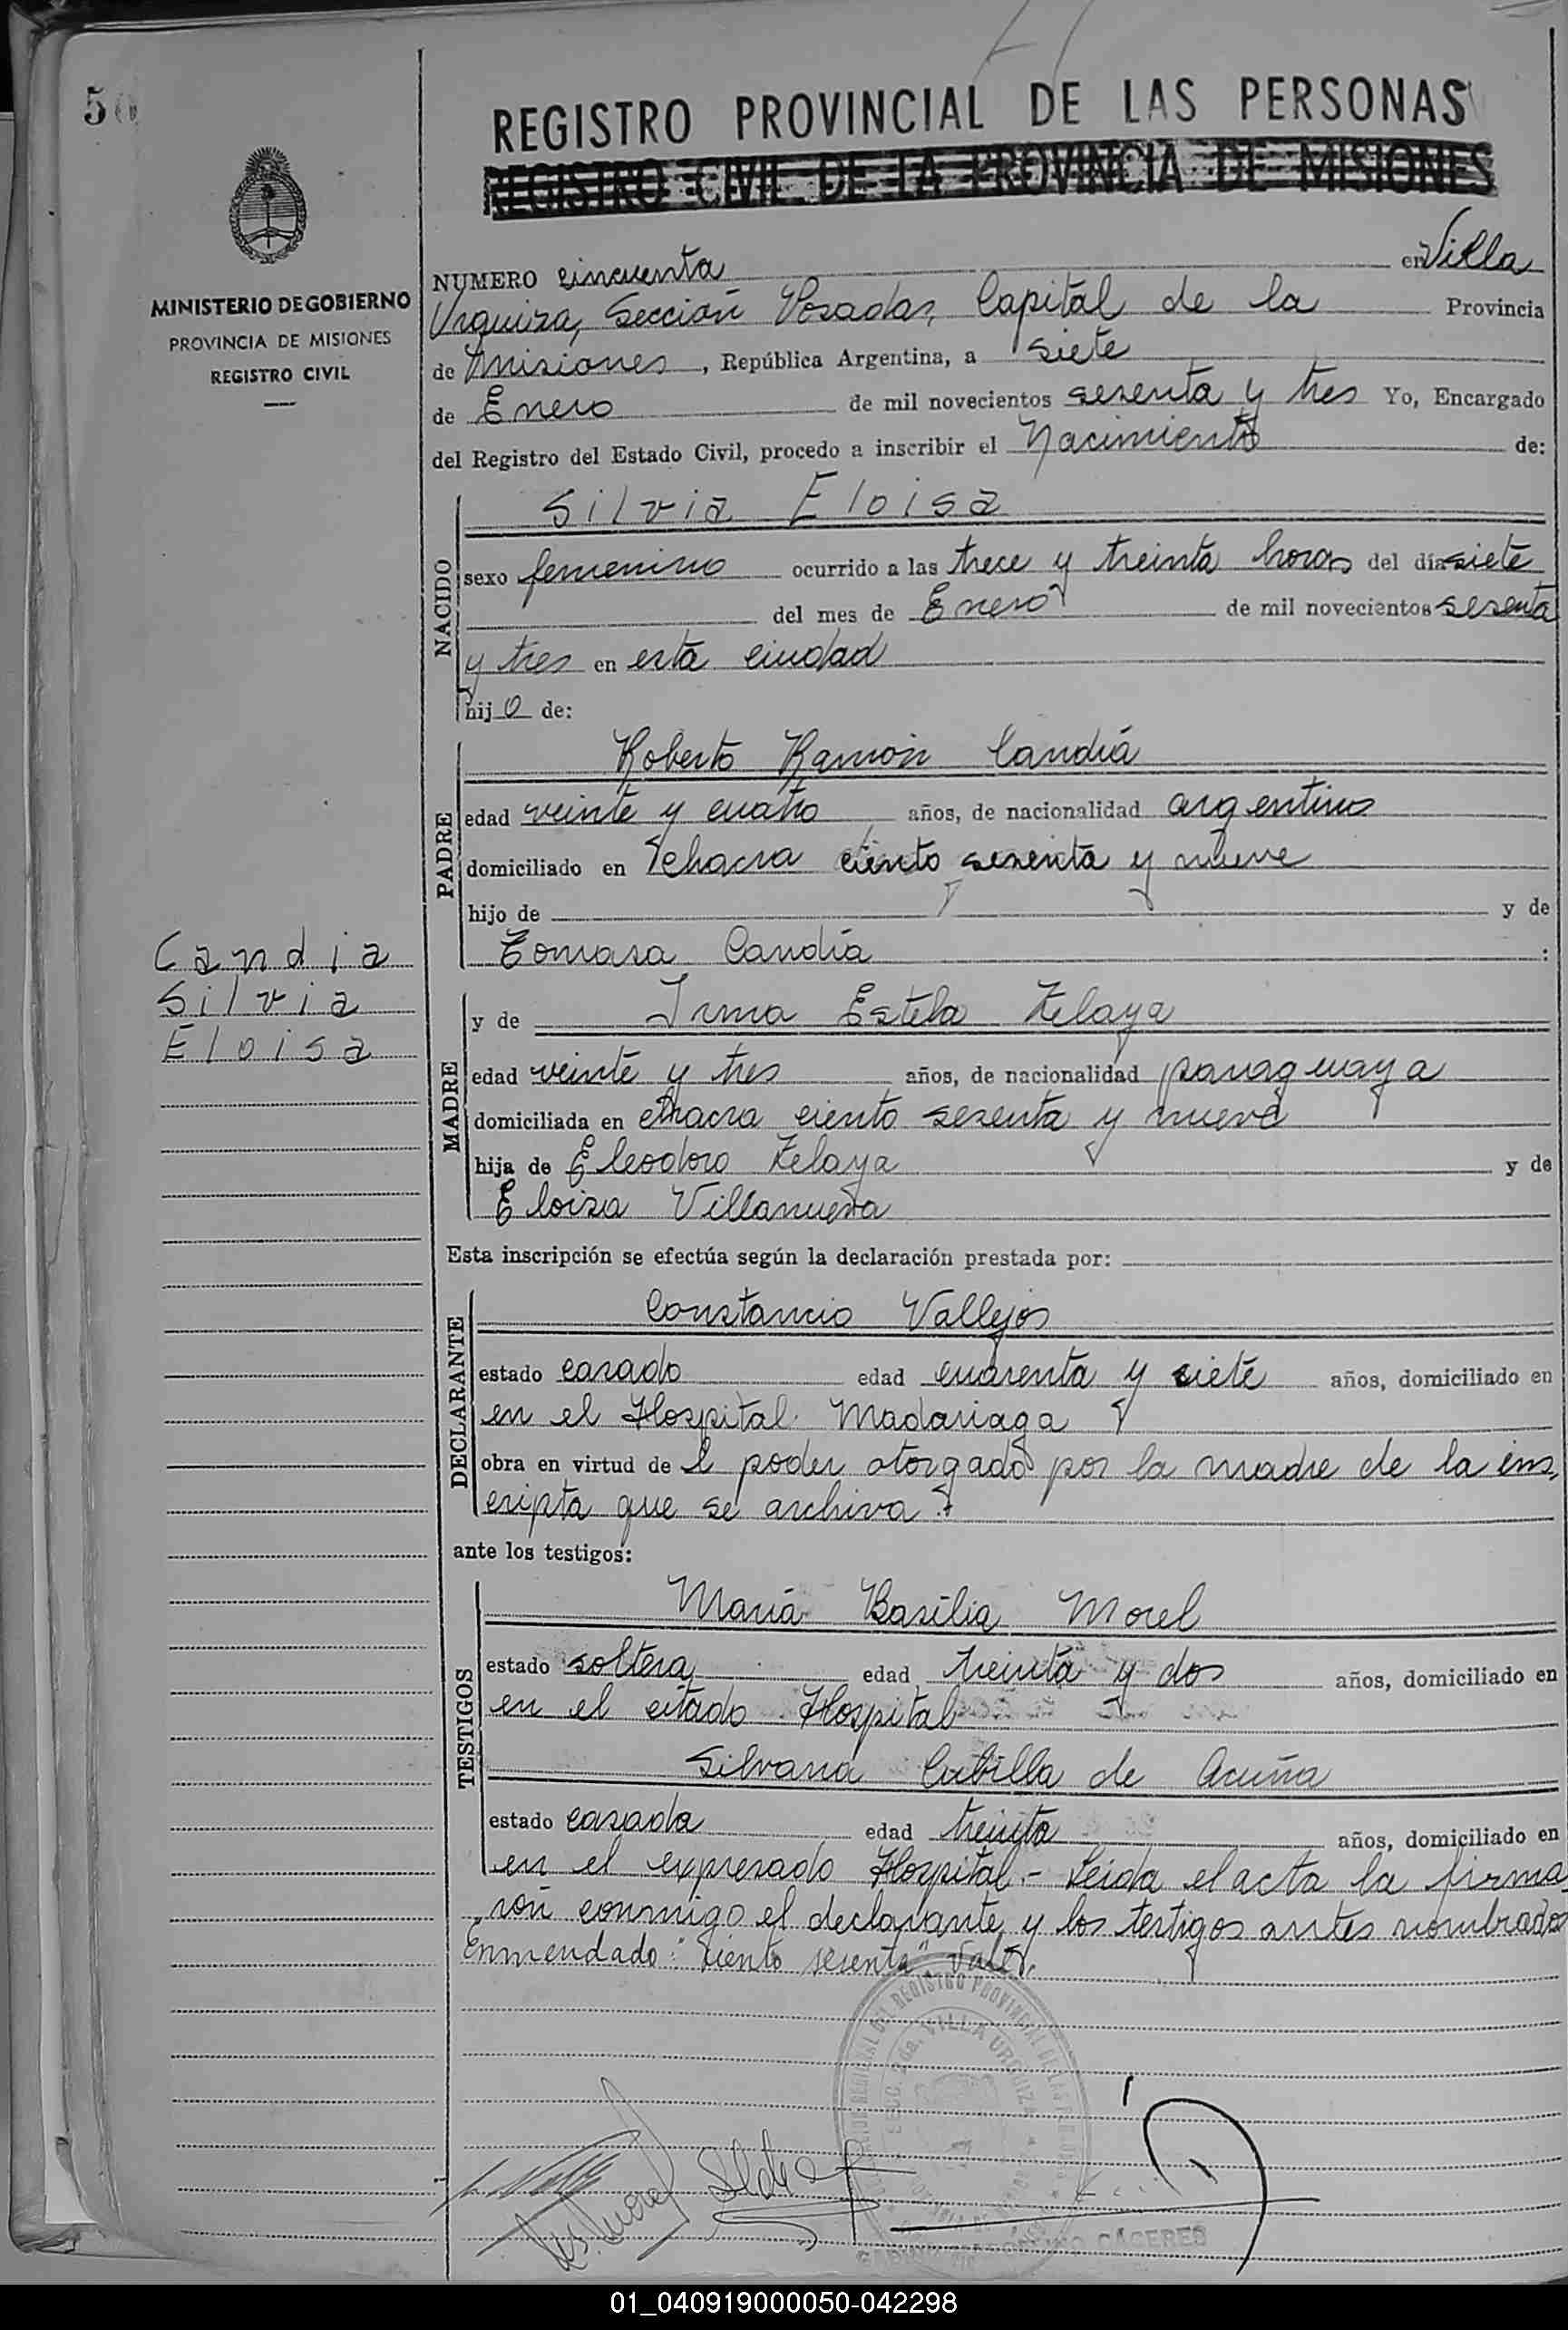 50
REGISTRO PROVINCIAL DE LAS PERSONAS
REGISTRO CIVIL DE LA PROVINCIA DE MISIONES
MINISTERIO DE GOBIERNO
PROVINCIA DE MISIONES
REGISTRO CIVIL
NUMERO cincuenta en Villa
Urquiza, Sección Posadas, Capital de la Provincia
de Misiones, República Argentina, a siete
de Enero de mil novecientos sesenta y tres Yo, Encargado
del Registro del Estado Civil, procedo a inscribir el Nacimiento de:
NACIDO
Silvia Eloisa
sexo femenino ocurrido a las trece y treinta horas del día siete
del mes de Enero de mil novecientos sesenta
y tres en esta ciudad
hijo de:
PADRE
Roberto Ramón Candiá
edad veinte y cuatro años, de nacionalidad argentino
domiciliado en chacra ciento sesenta y nueve
hijo de y de
Tomasa Candia :
Candia
Silvia
Eloisa
MADRE
y de Irma Estela Zelaya
edad veinte y tres años, de nacionalidad paraguaya
domiciliada en chacra ciento sesenta y nueve
hija de Eleodoro Zelaya y de
Eloisa Villanueva
Esta inscripción se efectúa según la declaración prestada por:
DECLARANTE
Constancio Vallejos
estado casado edad cuarenta y siete años, domiciliado en
en el Hospital Madariaga
obra en virtud de l poder otorgado por la madre de la ins,
cripta que se archiva.
ante los testigos:
TESTIGOS
María Basilia Morel
estado soltera edad treinta y dos años, domiciliado en
en el citado Hospital
Silvana Cubilla de Acuña
estado casada edad treinta años, domiciliado en
en el expresado Hospital.- Leida el acta la firma
ron conmigo el declarante y los testigos antes nombrados
Enmendado: "ciento sesenta" Vale.
VILLA URQUIZA
CÁCERES
01_040919000050-042298